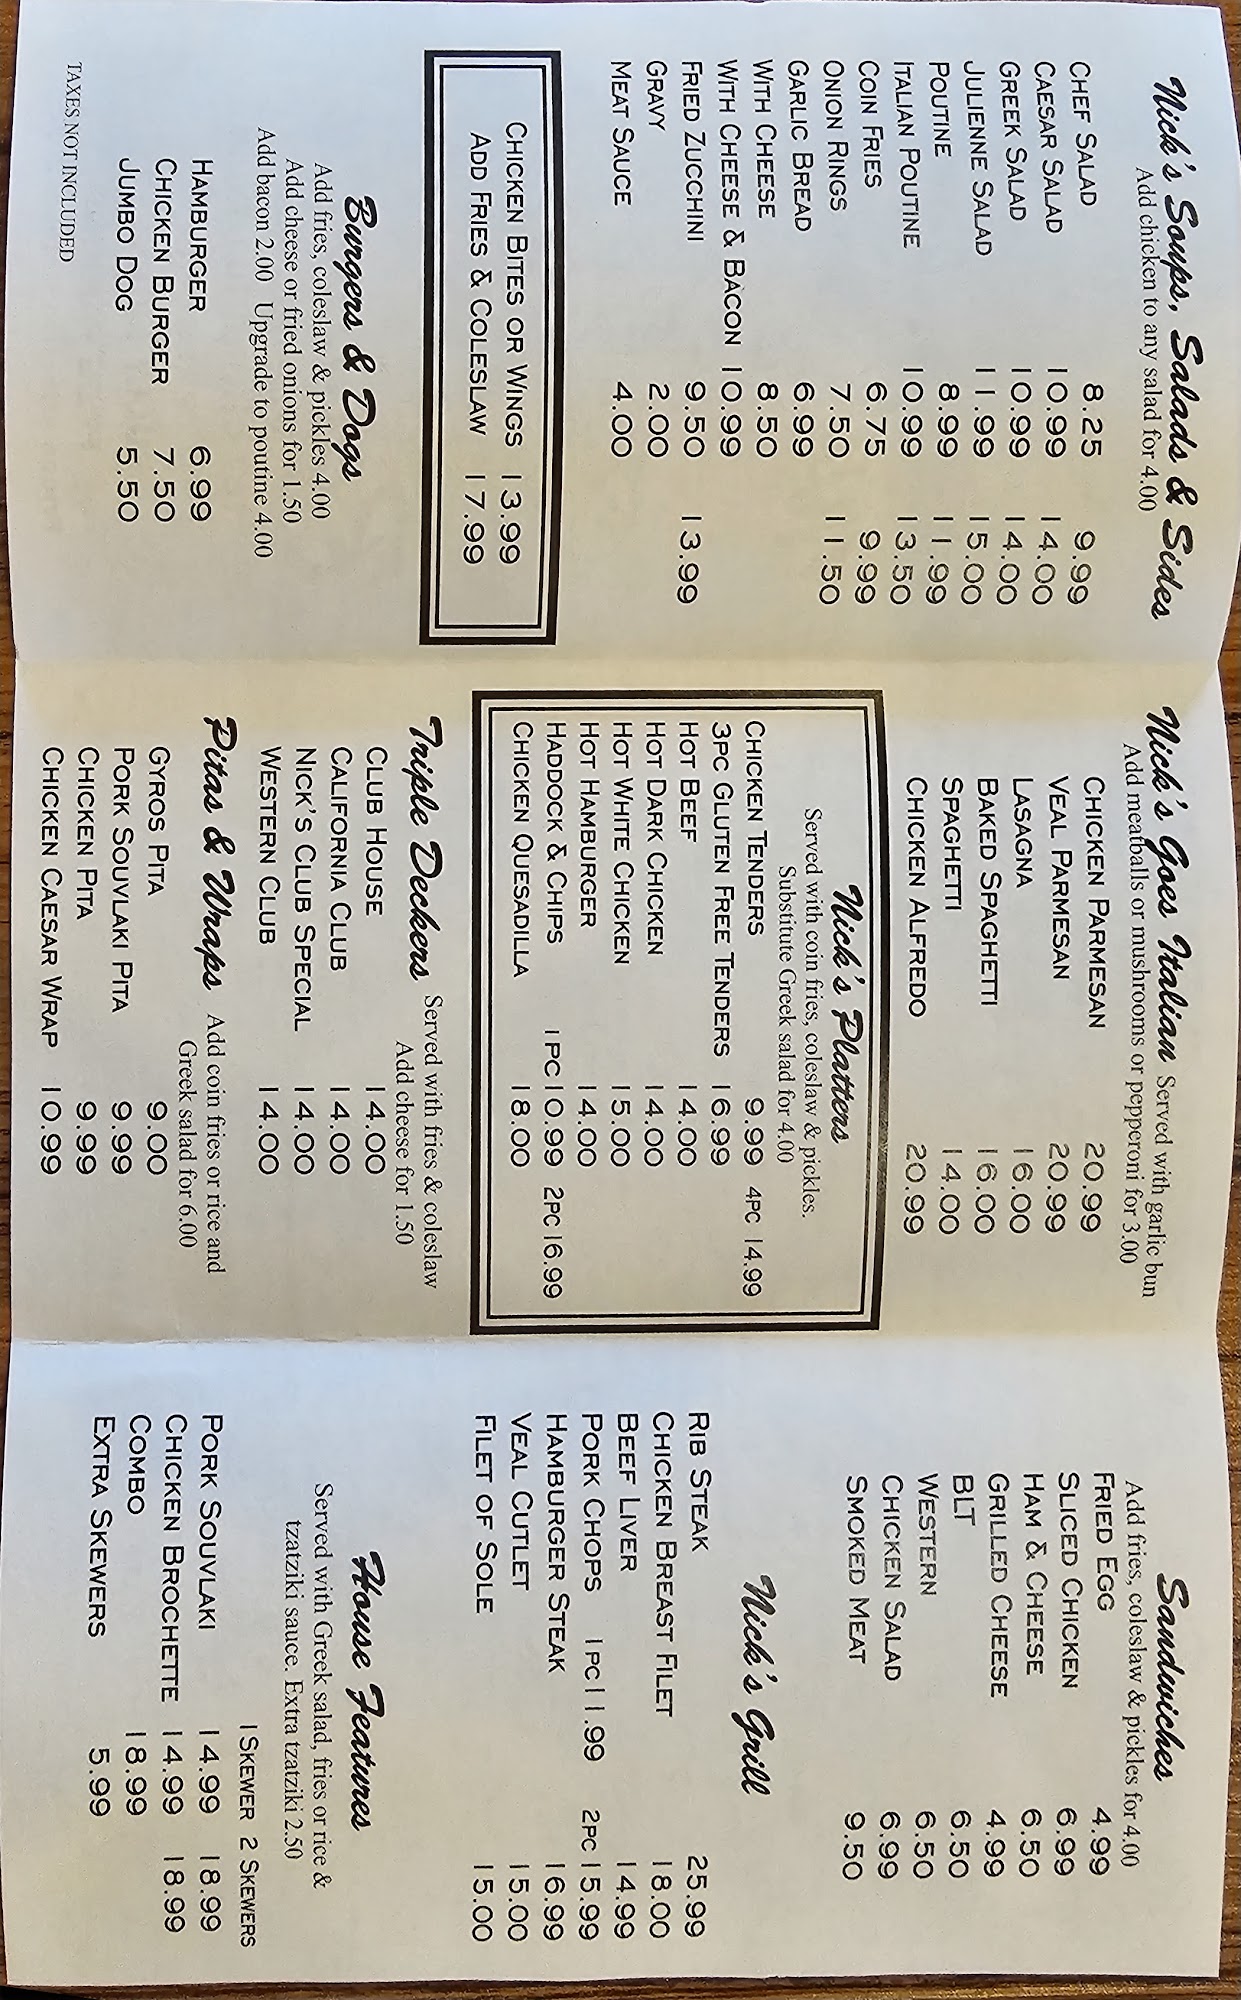 Nick's Soups, Salads & Sides
Add chicken to any salad for 4.00
CHEF SALAD 8.25 9.99
CAESAR SALAD 10.99 14.00
GREEK SALAD 10.99 14.00
JULIENNE SALAD 11.99 15.00
POUTINE 8.99 11.99
ITALIAN POUTINE 10.99 13.50
COIN FRIES 6.75 9.99
ONION RINGS 7.50 11.50
GARLIC BREAD 6.99
WITH CHEESE 8.50
WITH CHEESE & BACON 10.99
FRIED ZUCCHINI 9.50 13.99
GRAVY 2.00
MEAT SAUCE 4.00
CHICKEN BITES OR WINGS 13.99
ADD FRIES & COLESLAW 17.99
Burgers & Dogs
Add fries, coleslaw & pickles 4.00
Add cheese or fried onions for 1.50
Add bacon 2.00 Upgrade to poutine 4.00
HAMBURGER 6.99
CHICKEN BURGER 7.50
JUMBO DOG 5.50
TAXES NOT INCLUDED
Nick's Goes Italian Served with garlic bun
Add meatballs or mushrooms or pepperoni for 3.00
CHICKEN PARMESAN 20.99
VEAL PARMESAN 20.99
LASAGNA 16.00
BAKED SPAGHETTI 16.00
SPAGHETTI 14.00
CHICKEN ALFREDO 20.99
Nick's Platters
Served with coin fries, coleslaw & pickles.
Substitute Greek salad for 4.00
CHICKEN TENDERS 9.99 4PC 14.99
3PC GLUTEN FREE TENDERS 16.99
HOT BEEF 14.00
HOT DARK CHICKEN 14.00
HOT WHITE CHICKEN 15.00
HOT HAMBURGER 14.00
HADDOCK & CHIPS 1PC 10.99 2PC 16.99
CHICKEN QUESADILLA 18.00
Triple Deckers Served with fries & coleslaw
Add cheese for 1.50
CLUB HOUSE 14.00
CALIFORNIA CLUB 14.00
NICK'S CLUB SPECIAL 14.00
WESTERN CLUB 14.00
Pitas & Wraps Add coin fries or rice and
Greek salad for 6.00
GYROS PITA 9.00
PORK SOUVLAKI PITA 9.99
CHICKEN PITA 9.99
CHICKEN CAESAR WRAP 10.99
Sandwiches
Add fries, coleslaw & pickles for 4.00
FRIED EGG 4.99
SLICED CHICKEN 6.99
HAM & CHEESE 6.50
GRILLED CHEESE 4.99
BLT 6.50
WESTERN 6.50
CHICKEN SALAD 6.99
SMOKED MEAT 9.50
Nick's Grill
RIB STEAK 25.99
CHICKEN BREAST FILET 18.00
BEEF LIVER 14.99
PORK CHOPS 1PC 11.99 2PC 15.99
HAMBURGER STEAK 16.99
VEAL CUTLET 15.00
FILET OF SOLE 15.00
House Features
Served with Greek salad, fries or rice &
tzatziki sauce. Extra tzatziki 2.50
1 SKEWER 2 SKEWERS
PORK SOUVLAKI 14.99 18.99
CHICKEN BROCHETTE 14.99 18.99
COMBO 18.99
EXTRA SKEWERS 5.99